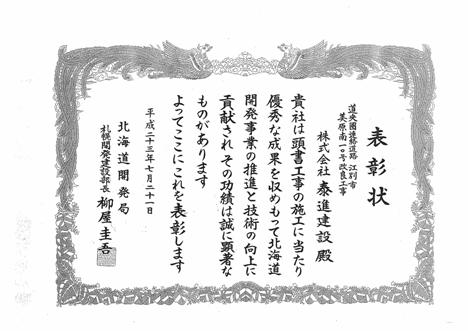 表彰状
道央圏連絡道路 江別市
美原南一〇号改良工事
株式会社 泰進建設 殿
貴社は頭書工事の施工に当たり
優秀な成果を収めもって北海道
開発事業の推進と技術の向上に
貢献され その功績は誠に顕著な
ものがあります
よってここにこれを表彰します
平成二十三年七月二十一日
北海道開発局
札幌開発建設部長 柳屋圭吾